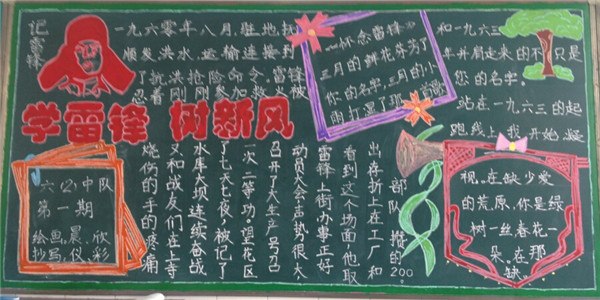 记雷锋
一九六零年八月,驻地抚
顺发洪水,运输连接到
了抗洪抢险命令。雷锋
忍着刚刚参加救火被
学雷锋 树新风
烧伤的手的疼痛
又和战友们在上寺
水库大坝连续奋战
了七天七夜,被记了
一次二等功。望花区
召开了大生产号召
动员大会,声势很大
雷锋上街办事正好
看到这个场面,他取
出存折上在工厂和
部队攒的200
六(2)中队
第一期
绘画.晨、欣
抄写.仪、彩
怀念雷锋
三月的鲜花芬芳了
你的名字,三月的小
雨打湿了那一首歌
和一九六三
年并肩走来的不只是
您的名字。
站在一九六三的起
跑线上,我开始凝
视。在缺少爱
的荒原,你是绿
树一丝春花一
朵。在那
缺